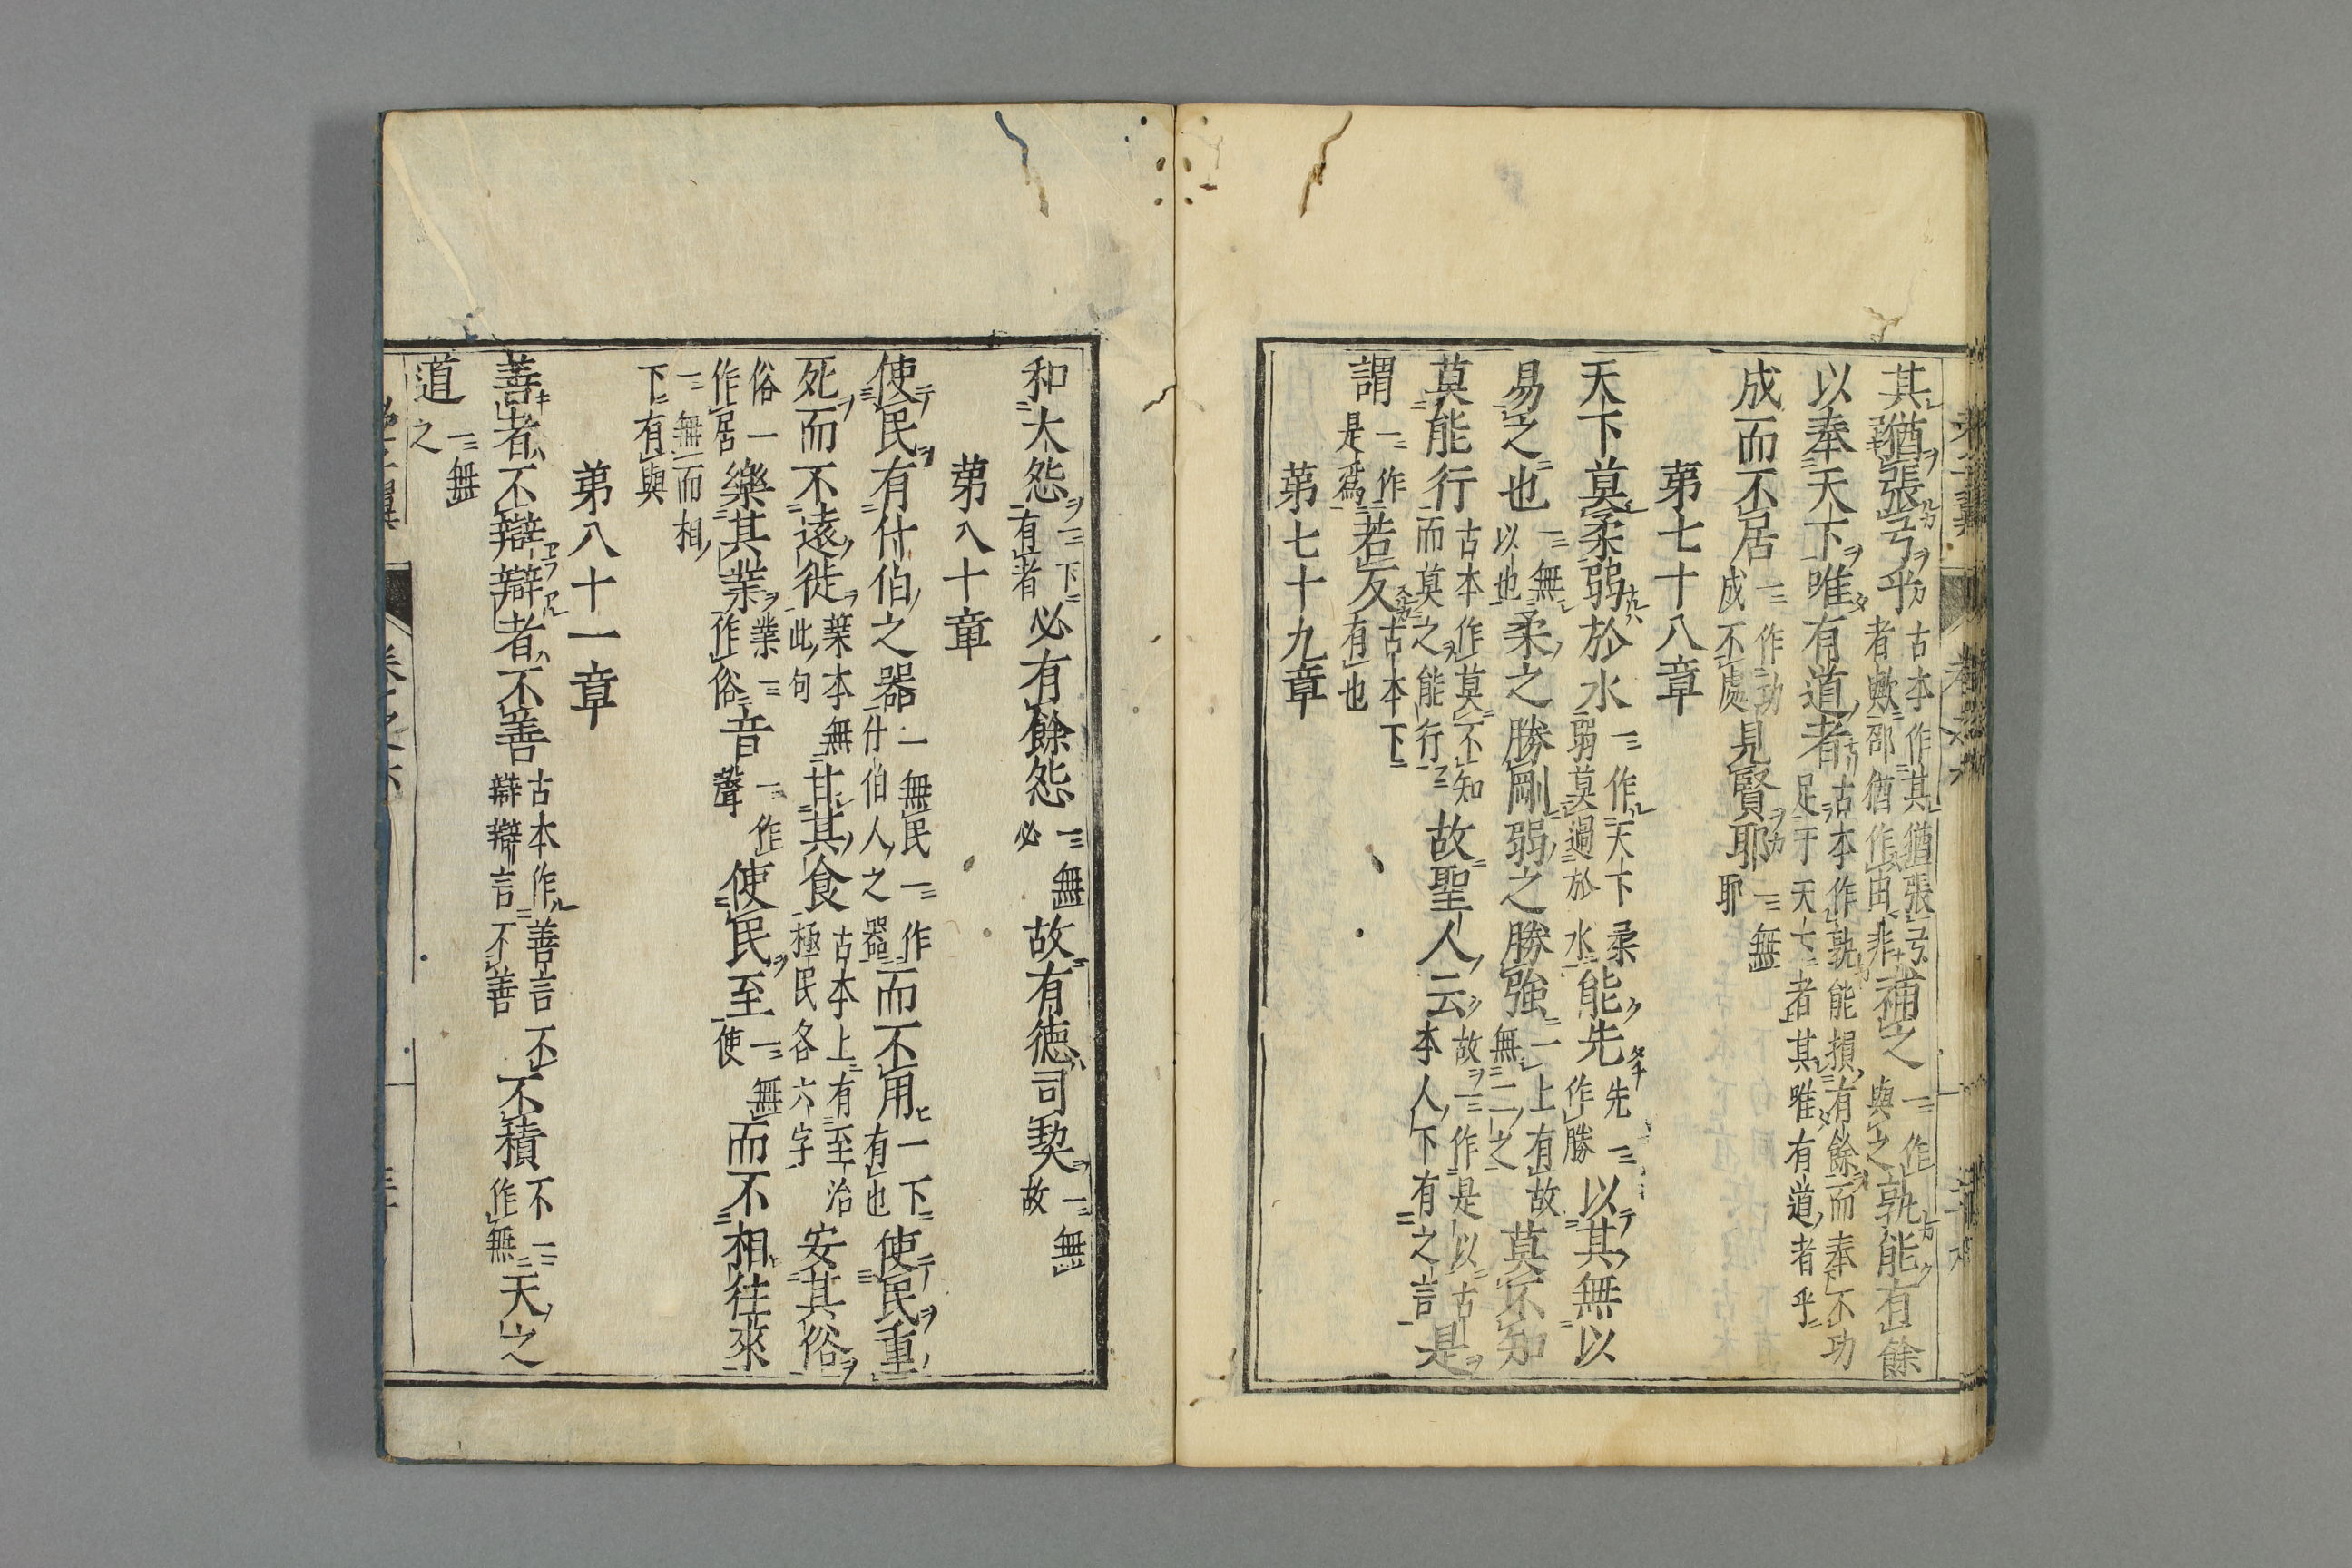 其猶張弓乎古本作其猶張弓者歟部猶作由非補之一作與之孰能有餘
以奉天下唯有道者古本作孰能損有餘而奉不足于天下者其唯有道者乎功
成而不居一作功成不處見賢耶一無耶
第七十八章
天下莫柔弱於水一作天下柔弱莫過於水能先先一作勝以其無以
易之也一無以也柔之勝剛弱之勝強一上有故無二之莫不知
莫能行古本作莫不知而莫之能行故聖人云故一作是以古本人下有之言是
謂一作是爲若反古本下有也
第七十九章
和大怨一下有者必有餘怨一無必故有德司契一無故
第八十章
使民有什伯之器一無民一作什伯人之器而不用一下有也使民重
死而不遠徙葉本無此句甘其食古本上有至治極民各六字安其俗
俗一作居樂其業業一作俗音一作聲使民至一無使而不相往來
一無而相下有與
第八十一章
善者不辯辯者不善古本作善言不辯辯言不善不積不一作無天之
道一無之